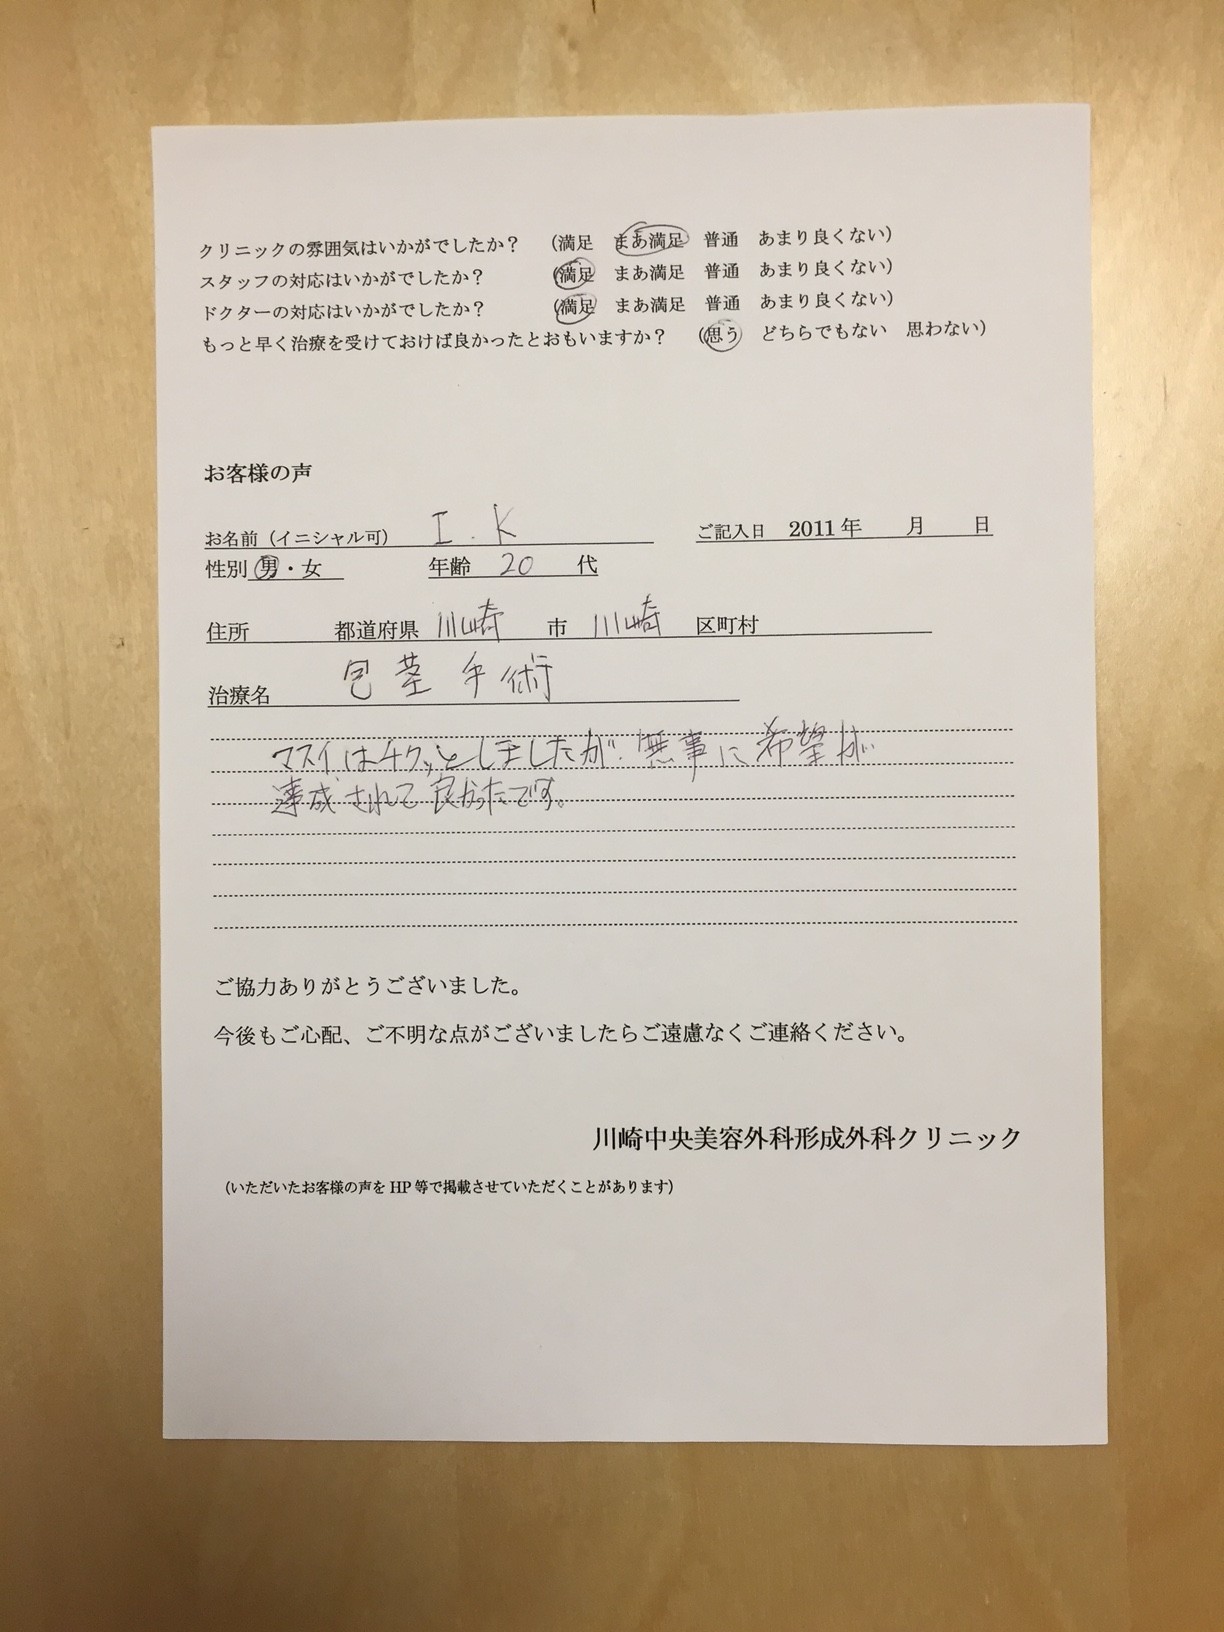 クリニックの雰囲気はいかがでしたか？ （満足 まあ満足 普通 あまり良くない）
スタッフの対応はいかがでしたか？ （満足 まあ満足 普通 あまり良くない）
ドクターの対応はいかがでしたか？ （満足 まあ満足 普通 あまり良くない）
もっと早く治療を受けておけば良かったとおもいますか？ （思う どちらでもない 思わない）
お客様の声
お名前（イニシャル可） I．K ご記入日 2011年 月 日
性別 男・女 年齢 20 代
住所 都道府県 川崎 市 川崎 区町村
治療名 包茎手術
マスイはチクッとしましたが、無事に希望が
達成されて良かったです。
ご協力ありがとうございました。
今後もご心配、ご不明な点がございましたらご遠慮なくご連絡ください。
川崎中央美容外科形成外科クリニック
（いただいたお客様の声を HP 等で掲載させていただくことがあります）